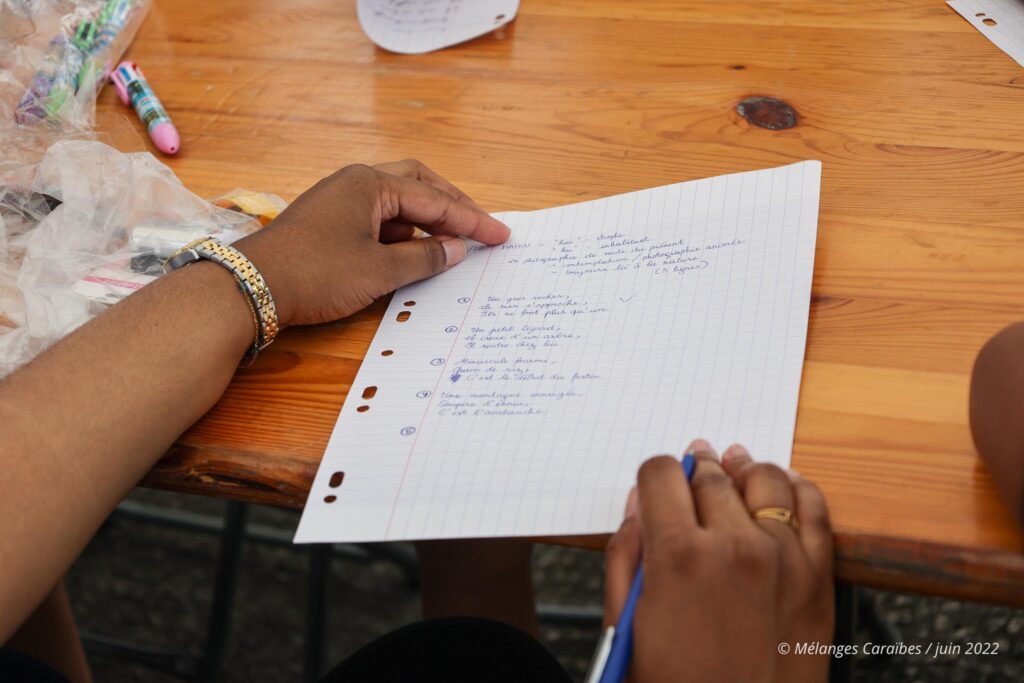 HAIKU = "hai" - strophe
"ku" - inhabituel
→ photographie de mots du présent
- contemplation / photographie animée
- toujours lié à la nature
(3 lignes)
① Un gros rocher,
La mer s'approche,
Ils ne font plus qu'un.
② Un petit lézard,
Le creux d'un arbre,
Il rentre chez lui.
③ Minuscule fourmi,
Grain de riz,
C'est le début du festin.
④ Une montagne enneigée,
Soupire d'ennui,
C'est l'avalanche.
⑤
© Mélanges Caraïbes / juin 2022